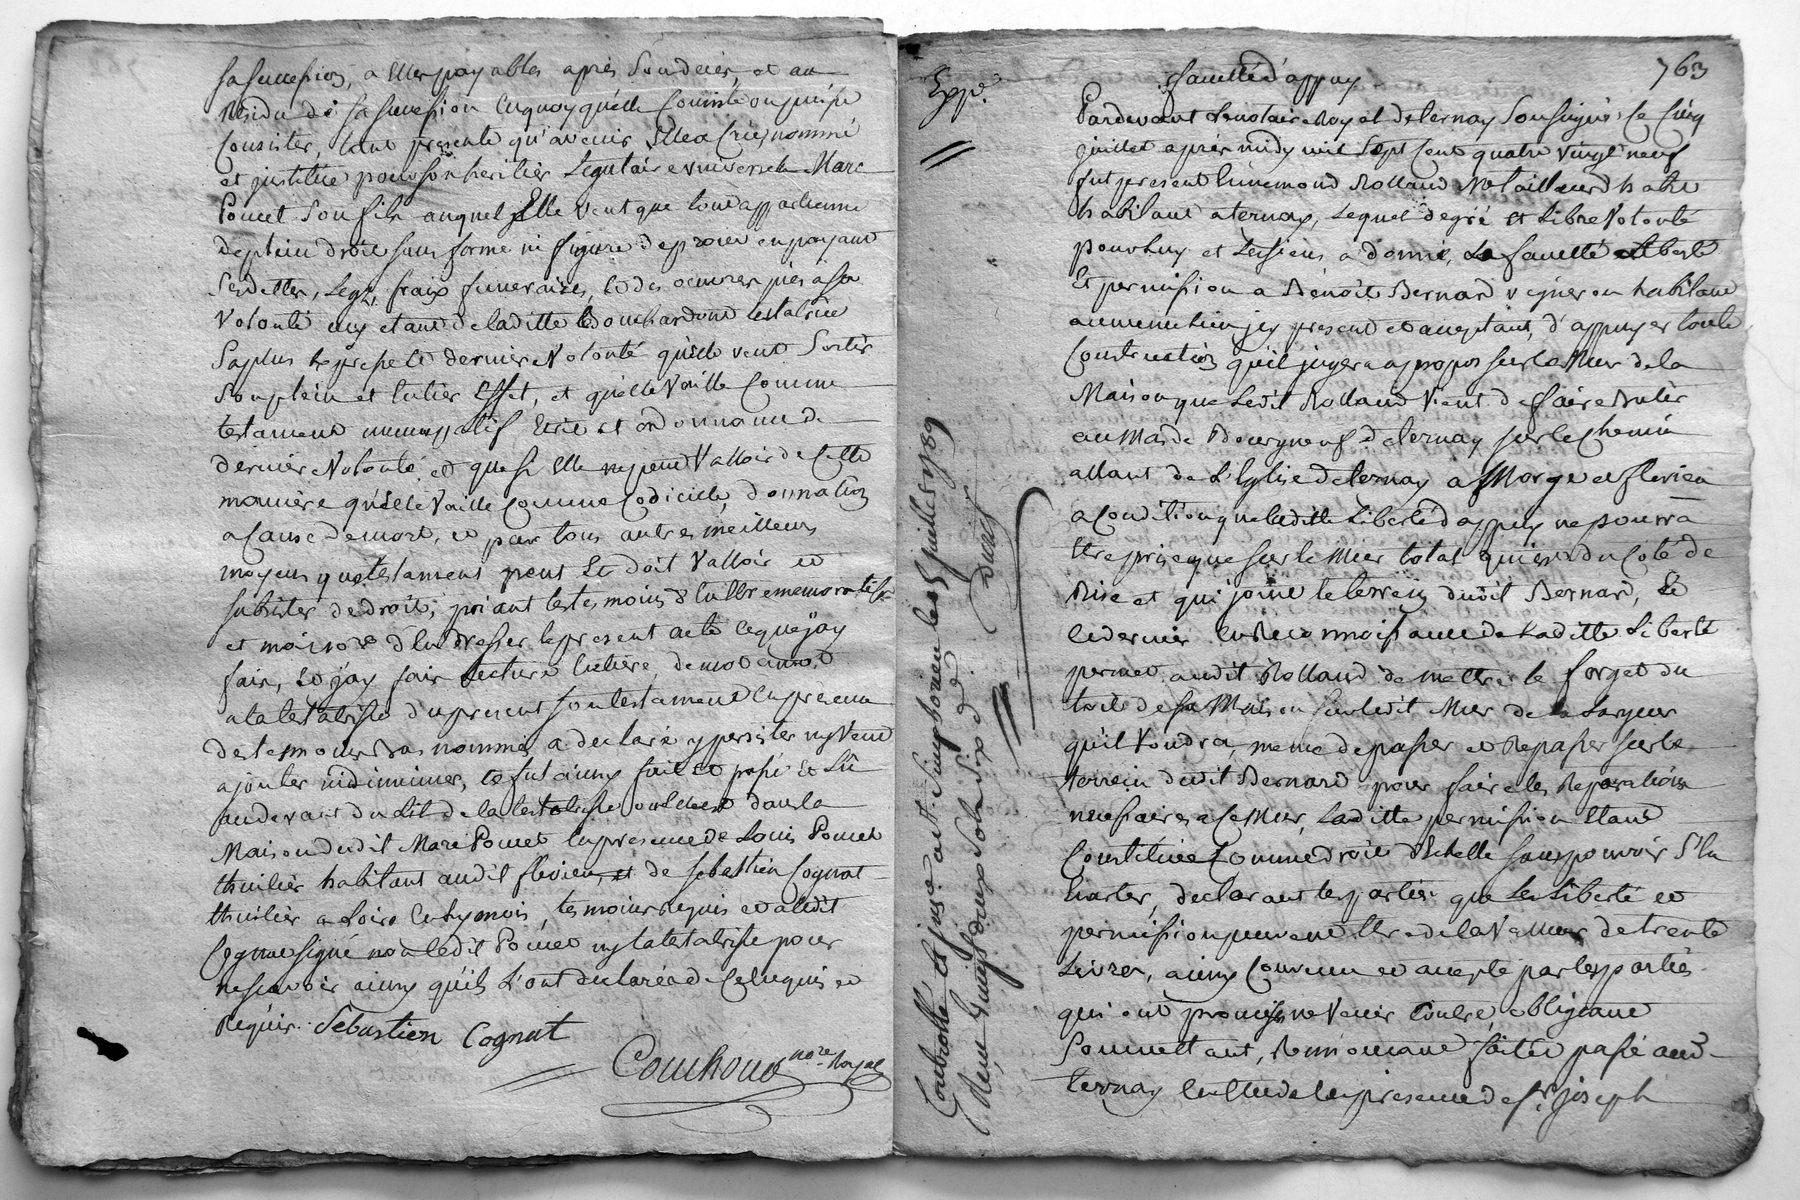 sa succession, a Elles payables après Son décès, et au
Résidu de sa succession Enquoy quelle Consiste ou puisse
Consister, tant presente qu'avenir Elle a Crée, nommé
et justitué pour son heritier Legataire universel Marc
Poncet Son fils auquel Elle veut que tout appartienne
de plein droit sans forme ni figure de procès en payant
Ses dettes, Legs, frais funeraires, et des oeuvres pies à sa
Volonté
Sa plus Expresse et derniere Volonté quelle veut Sortir
Son plein et Entier Effet, et quelle Vaille Comme
testament nuncupatif Ecrit et ordonnance de
derniere Volonté, et que si Elle ne peut Valloir de Cette
manière quelle Vaille Comme Codicille, donnation
a Cause de mort, et par tous autres meilleurs
moyens que testament peut Et doit Valloir et
subsister de droit, priant les temoins d'en Etre memoratifs
et moi nore d'En dresser le present acte Ce que j'ay
fait, et j'ay fait Lecture Entière, de mot a mot
a la testatrice du present son testament En presence
des temoins bas nommés a declaré y persister ny Veut
ajouter ni diminuer, ce fut ainsy fait et passé et Lû
au devant du Lit de la testatrice dans la
Maison dudit Marc Poncet En presence de Louis Poncet
thuilier habitant audit flevieu, et de Sebastien Cognat
thuilier a Loire En Lyonnois, temoins Requis et aledit
Cognat signé non ledit Poncet ny la testatrice pour
ne scavoir ainsy qu'ils L'ont declaré de Ce Enquis et
Requis. Sebastien Cognat
Couchoud nore. Royal
763
Exp.é
faculté d'appuy
Pardevant Le notaire Royal de ternay Soussigné, Le Cinq
juillet après midy mil Sept Cent quatre vingt neuf
fut present Ennemond Rolland Me tailleur d'habit
habitant a ternay, Lequel de gré et Libre Volonté
pour luy et Les siens a donné, La faculté Liberté
Et permission a Benoît Bernard vigneron habitant
au meme Lieu jcy present et acceptant, d'appuyer toute
Construction qu'il jugera a propos sur Le Mur de la
Maison que Ledit Rolland Vient de faire batir
au Mas de Bourgneuf de ternay sur le chemin
allant de L'Eglise de ternay à Morge et flevieu
a Condition que laditte Liberté d'appuy ne pourra
Etre prise que sur le Mur total qui est du Coté de
Bise et qui joint le terrein dudit Bernard, Et
Ce dernier En Reconnoissance de Laditte Liberté
permet audit Rolland de mettre le forget du
toit de sa Maison sur ledit Mur de la Largeur
qu'il Voudra, meme de passer et Repasser sur le
terrein dudit Bernard pour faire les Reparations
necessaires a Ce Mur, Laditte permission Etant
Constituée Comme droit d'Echelle sans pouvoir S'En
Ecarter, declarant les parties que La Liberté et
permission peuvent Etre de la Valeur de trente
Livres, ainsy Convenu et accepté par les parties
qui ont promis ne Venir Contre, obligeant
Soumettant, Renonceant fait et passé audt
ternay En Etude En presence de Sr. joseph
Controllé et insé a St. Simphorien le 5 juillet 1789
Reçu